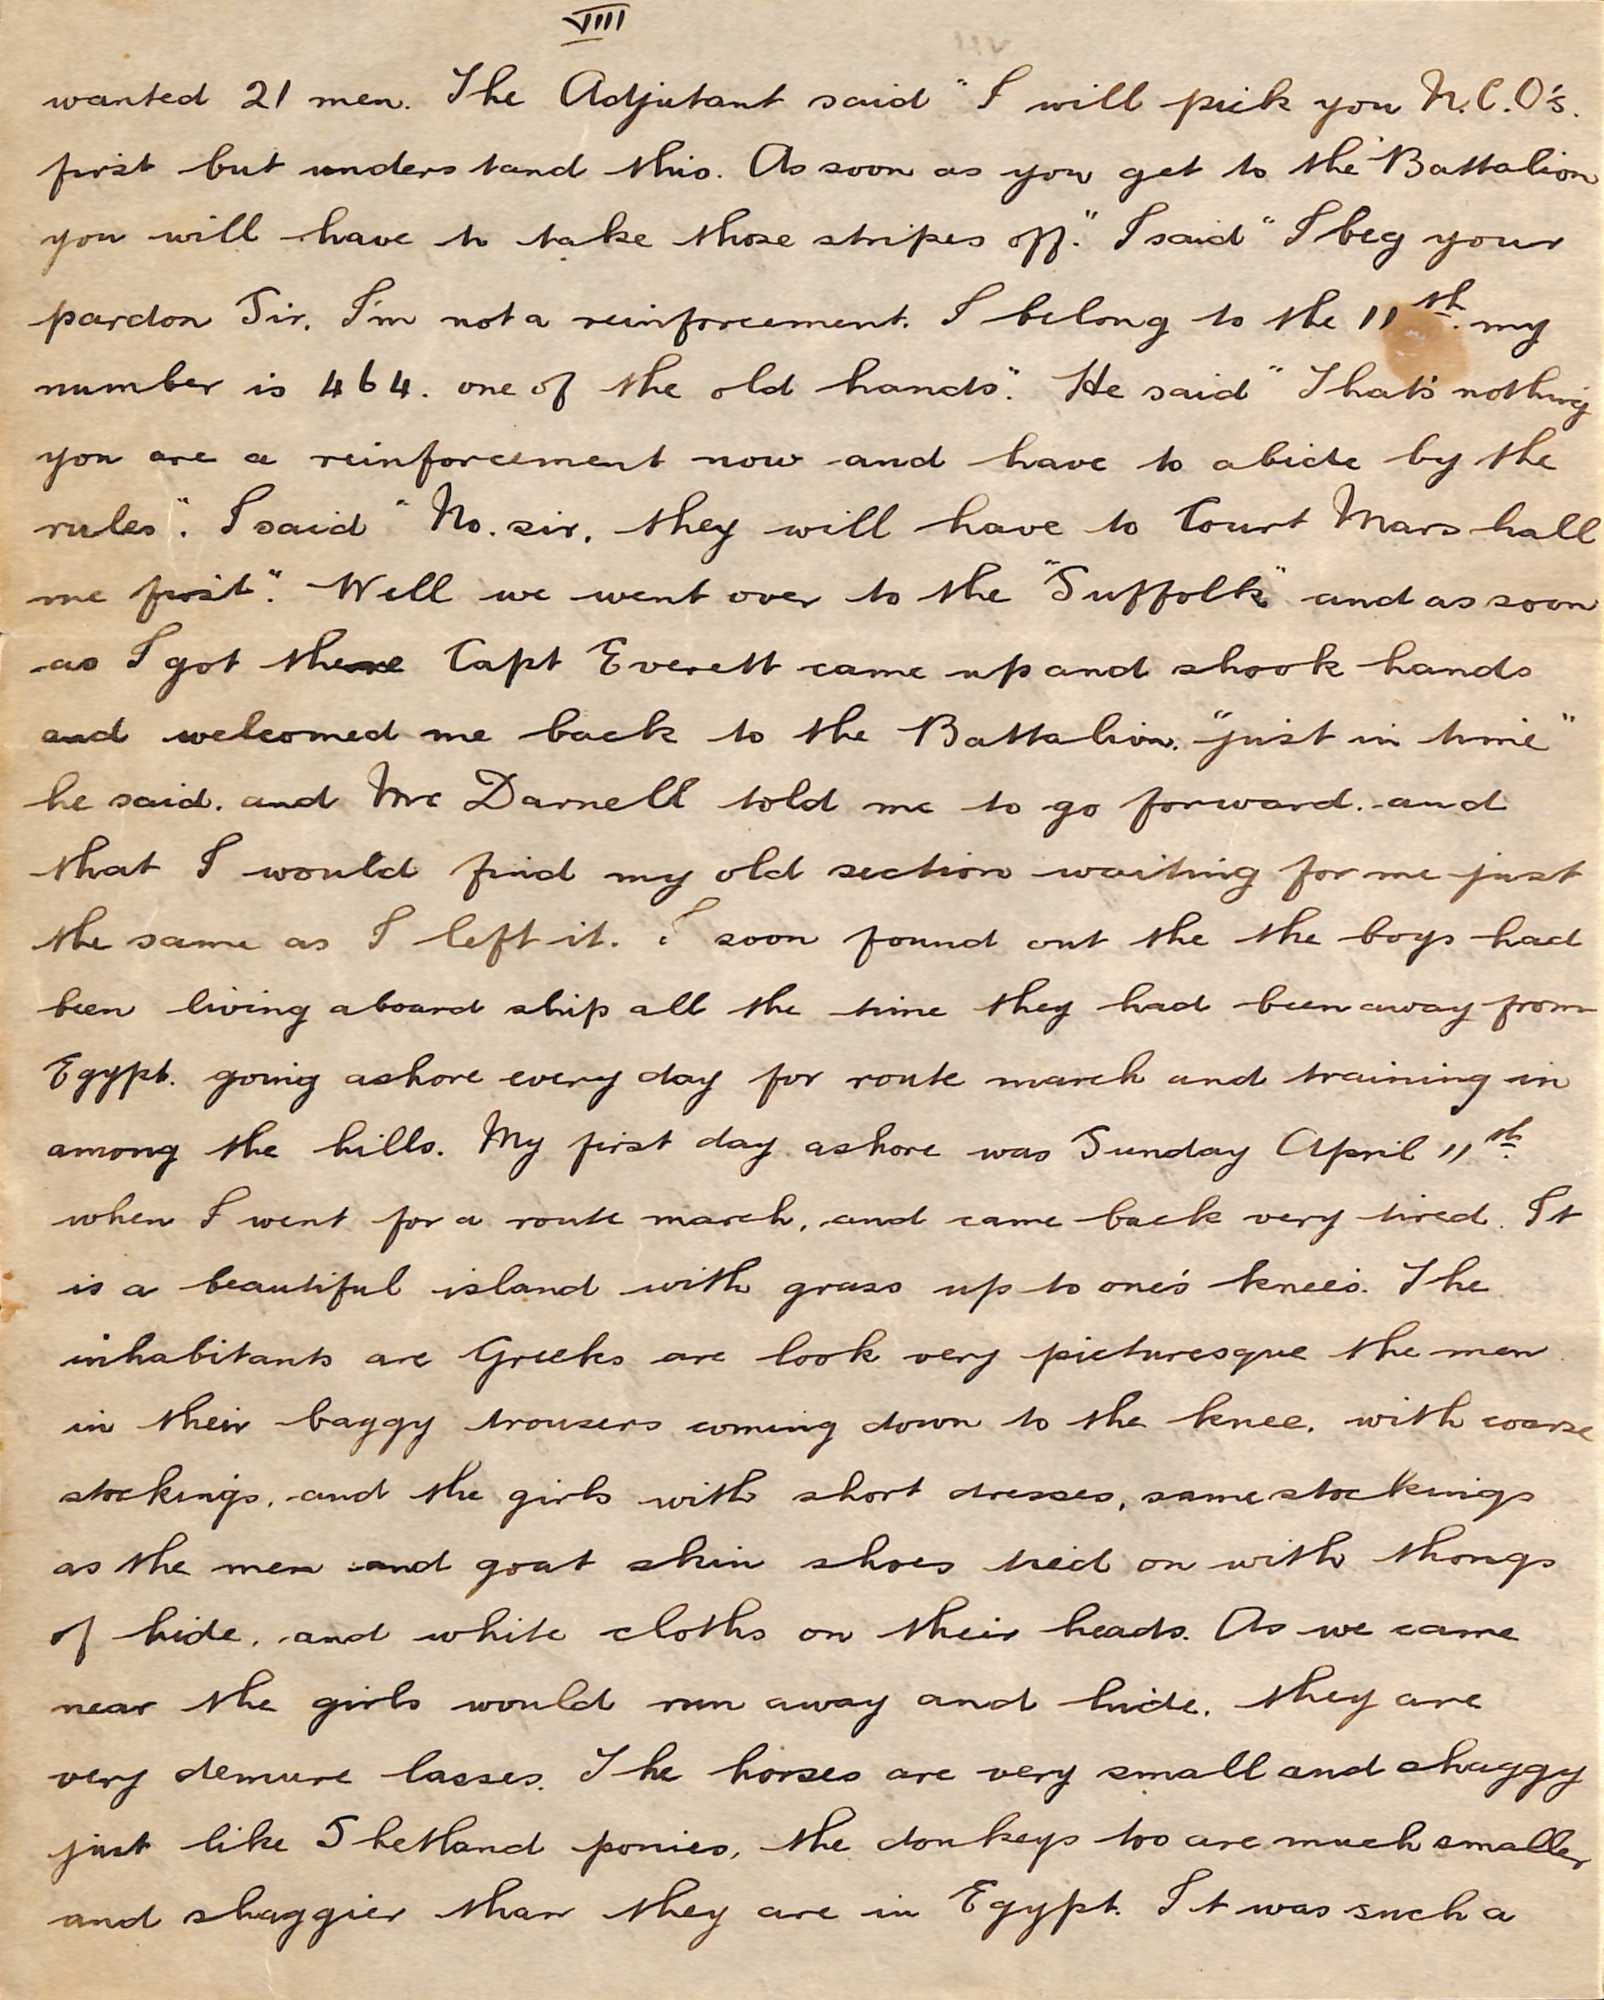 VIIII
wanted 21 men. The Adjutant said "I will pick you N.C.O's.
first but understand this. As soon as you get to the Battalion
you will have to take those stripes off." I said "I beg your
pardon Sir, I'm not a reinforcement. I belong to the 11th. my
number is 464. one of the old hands". He said "That's nothing
you are a reinforcement now and have to abide by the
rules". I said "No. sir, they will have to Court Marshall
me first". Well we went over to the "Suffolk" and as soon
as I got there Capt Everett came up and shook hands
and welcomed me back to the Battalion. "just in time"
he said. and Mr Darnell told me to go forward. and
that I would find my old section waiting for me just
the same as I left it. I soon found out the the boys had
been living aboard ship all the time they had been away from
Egypt. going ashore every day for route march and training in
among the hills. My first day ashore was Sunday April 11th.
when I went for a route march, and came back very tired. It
is a beautiful island with grass up to one's knees. The
inhabitants are Greeks are look very picturesque the men
in their baggy trousers coming down to the knee, with coarse
stockings, and the girls with short dresses, same stockings
as the men and goat skin shoes tied on with thongs
of hide, and white cloths on their heads. As we came
near the girls would run away and hide, they are
very demure lasses. The horses are very small and shaggy
just like Shetland ponies, the donkeys too are much smaller
and shaggier than they are in Egypt. It was such a